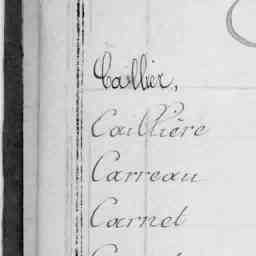 Caillier,
Caillière
Carreau
Carnet